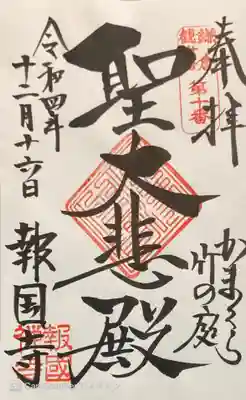 奉拝
鎌倉
観音
第十番
かまくら
竹の庭
聖大悲殿
令和四年
十二月十六日
報国寺
報國